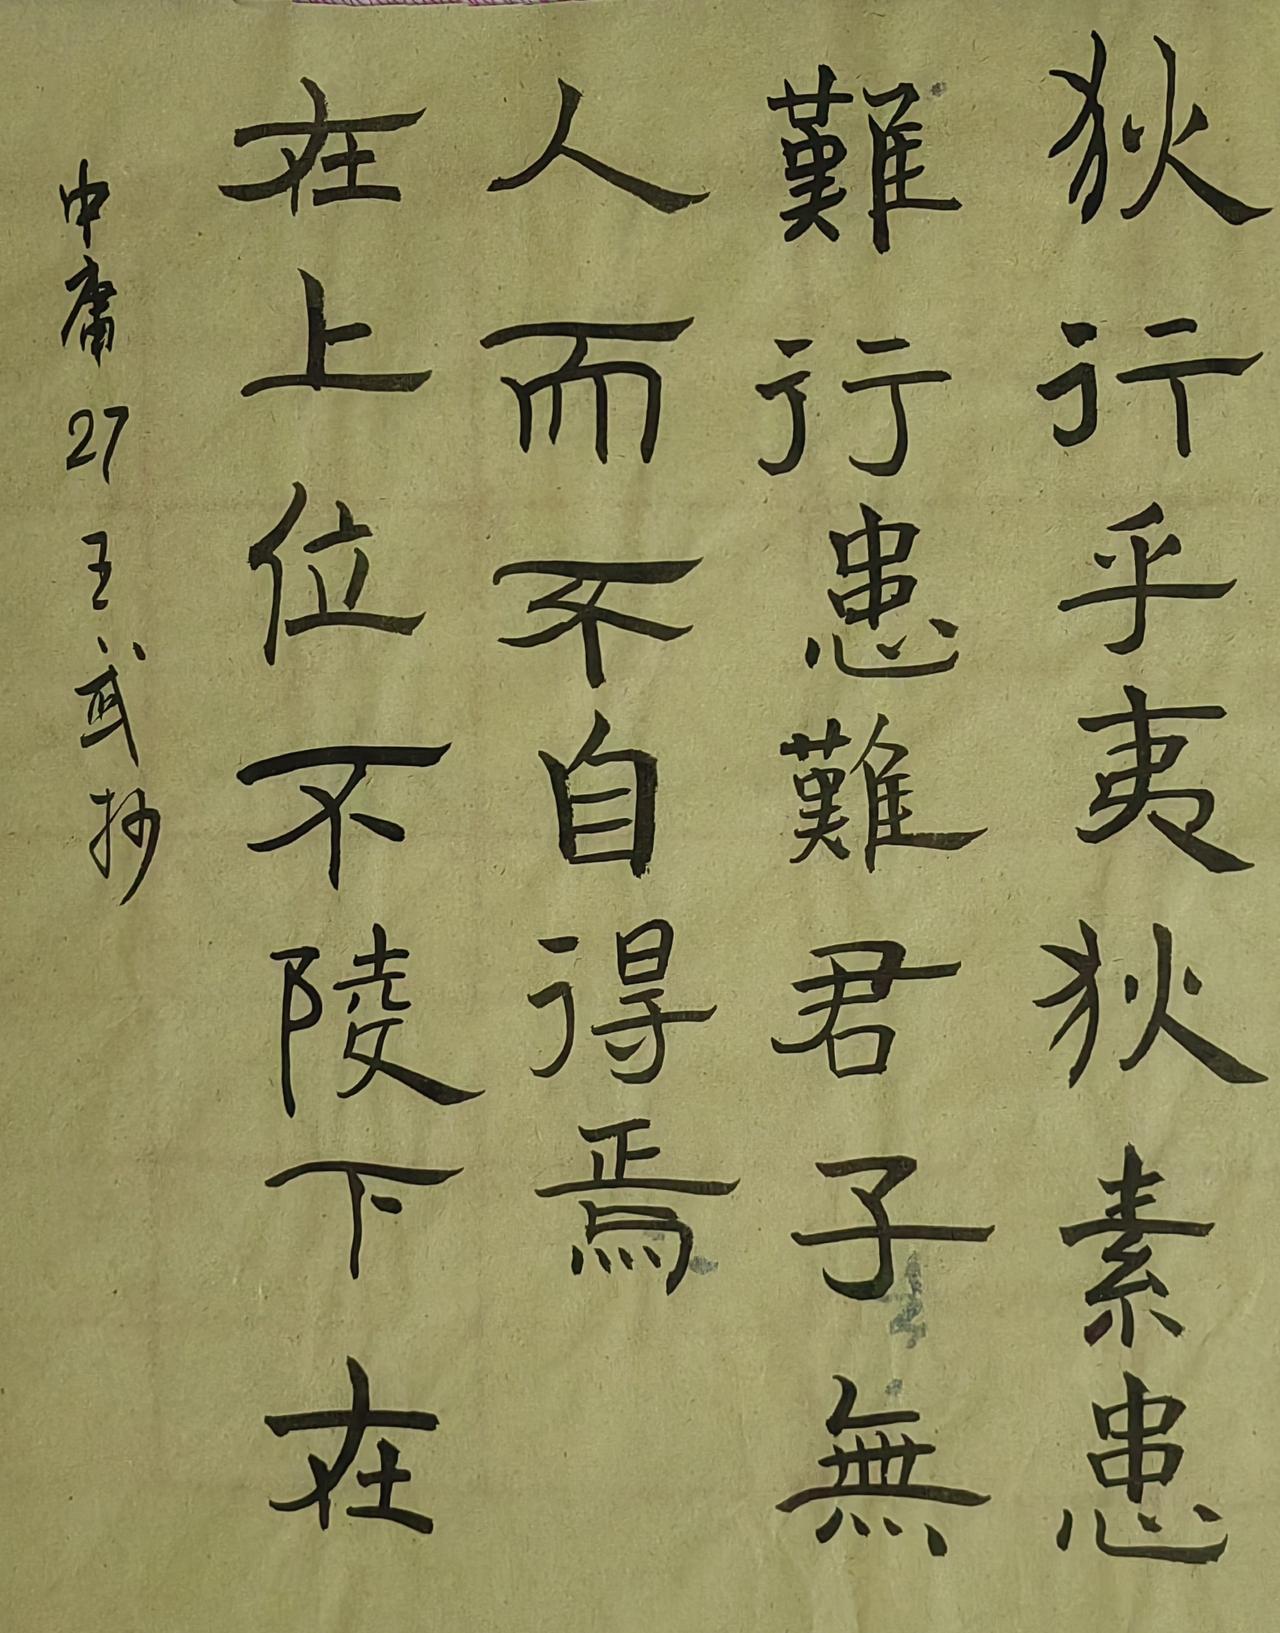 狄行乎夷狄素患
難行患難君子無
人而不自得焉
在上位不陵下在
中庸27王武抄